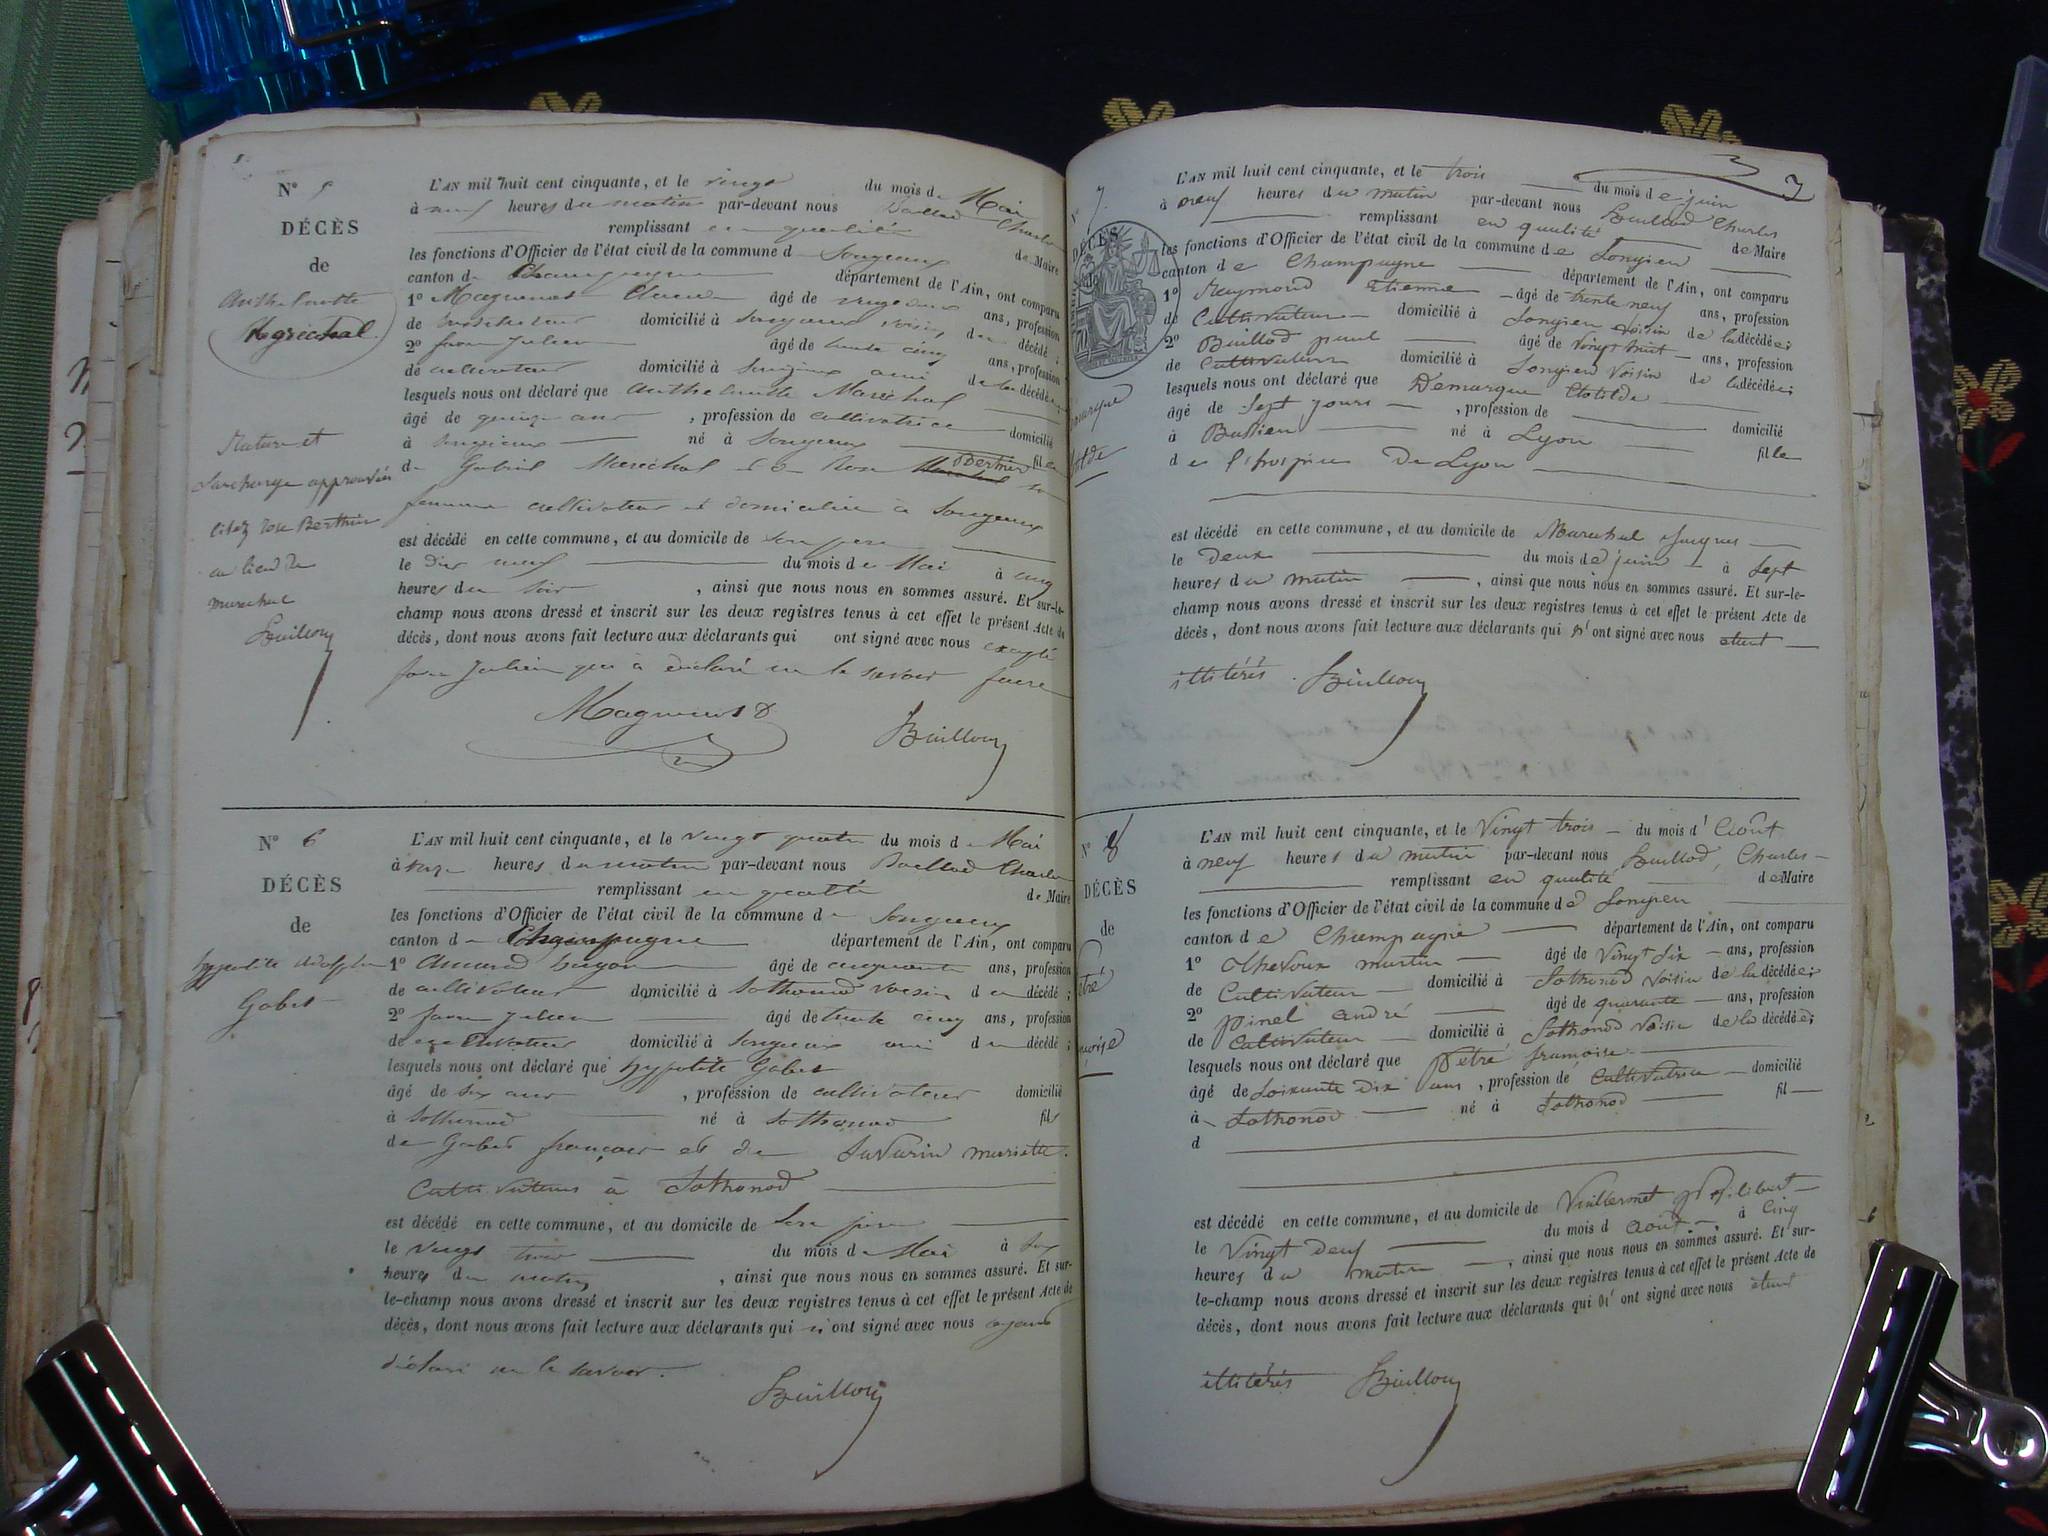 N° 5
DÉCÈS
de
Anthelmette
Maréchal
L'AN mil huit cent cinquante, et le vingt du mois de Mai
à neuf heures du matin par-devant nous Baillod Charles
remplissant en qualité de Maire
les fonctions d'Officier de l'état civil de la commune de Songieux
canton de Champagne département de l'Ain, ont comparu
1° âgé de vingt deux ans, profession
de instituteur domicilié à Songieux voisin du décédé ;
2° Julien âgé de trente cinq ans, profession
de cultivateur domicilié à Songieux ami de la décédée ;
lesquels nous ont déclaré que Anthelmette Maréchal
âgé de quinze ans , profession de cultivatrice domicilié
à Songieux né à Songieux fille
de Gabriel Maréchal et de Rose Berthier sa
femme cultivateur et domicilié à Songieux
est décédé en cette commune, et au domicile de son père
le dix neuf du mois de Mai à cinq
heures du soir , ainsi que nous nous en sommes assuré. Et sur-le-
champ nous avons dressé et inscrit sur les deux registres tenus à cet effet le présent Acte de
décès, dont nous avons fait lecture aux déclarants qui ont signé avec nous excepté
Julien qui à déclaré ne le savoir faire
Rature et
Surcharge approuvées
lisez Rose Berthier
au lieu de
marechal
N° 6
DÉCÈS
de
hyppolite Adolphe
Gabet
L'AN mil huit cent cinquante, et le vingt quatre du mois de Mai
à heures du matin par-devant nous Baillod Charles
remplissant en qualité de Maire
les fonctions d'Officier de l'état civil de la commune de Songieux
canton de Champagne département de l'Ain, ont comparu
1° âgé de cinquante ans, profession
de cultivateur domicilié à Sothonod voisin du décédé ;
2° Julien âgé de trente cinq ans, profession
de cultivateur domicilié à Songieux ami du décédé ;
lesquels nous ont déclaré que hyppolite Gabet
âgé de six ans , profession de cultivateur domicilié
à Sothonod né à Sothonod fils
de Gabet françois et de Savarin mariette.
Cultivateurs à Sothonod
est décédé en cette commune, et au domicile de son père
le vingt trois du mois de Mai à six
heures du matin , ainsi que nous nous en sommes assuré. Et sur-
le-champ nous avons dressé et inscrit sur les deux registres tenus à cet effet le présent Acte de
décès, dont nous avons fait lecture aux déclarants qui n'ont signé avec nous ayant
déclaré ne le savoir.
7
N° 7.
DÉCÈS
L'AN mil huit cent cinquante, et le trois du mois de juin
à neuf heures du matin par-devant nous Baillod Charles
remplissant en qualité de Maire
les fonctions d'Officier de l'état civil de la commune de Songieu
canton de Champagne département de l'Ain, ont comparu
1° Raymond Etienne âgé de trente neuf ans, profession
de Cultivateur domicilié à Songieu voisin de la décédée ;
2° Baillod paul âgé de Vingt huit ans, profession
de Cultivateur domicilié à Songieu Voisin de la décédée ;
lesquels nous ont déclaré que Demarque Clotilde
âgé de Sept jours , profession de domicilié
à Bassieu né à Lyon fille
de l'hospice De Lyon
est décédé en cette commune, et au domicile de Marechal Jacques
le Deux du mois de juin à Sept
heures du matin , ainsi que nous nous en sommes assuré. Et sur-le-
champ nous avons dressé et inscrit sur les deux registres tenus à cet effet le présent Acte de
décès, dont nous avons fait lecture aux déclarants qui n'ont signé avec nous etant
illitérés
N° 8
DÉCÈS
de
L'AN mil huit cent cinquante, et le Vingt trois du mois d'Août
à neuf heures du matin par-devant nous Baillod, Charles
remplissant en qualité de Maire
les fonctions d'Officier de l'état civil de la commune de Songieu
canton de Champagne département de l'Ain, ont comparu
1° martin âgé de Vingt Six ans, profession
de Cultivateur domicilié à Sothonod Voisin de la décédée ;
2° pinel andré âgé de quarante ans, profession
de Cultivateur domicilié à Sothonod Voisin de la décédée ;
lesquels nous ont déclaré que pétré framoise
âgé de Soixante Dix ans , profession de Cultivatrice domicilié
à Sothonod né à Sothonod fil
d
est décédé en cette commune, et au domicile de Vuilleronet philibert
le Vingt Deux du mois d Août à Cinq
heures du matin , ainsi que nous nous en sommes assuré. Et sur-
le-champ nous avons dressé et inscrit sur les deux registres tenus à cet effet le présent Acte de
décès, dont nous avons fait lecture aux déclarants qui n'ont signé avec nous etant
illitérés